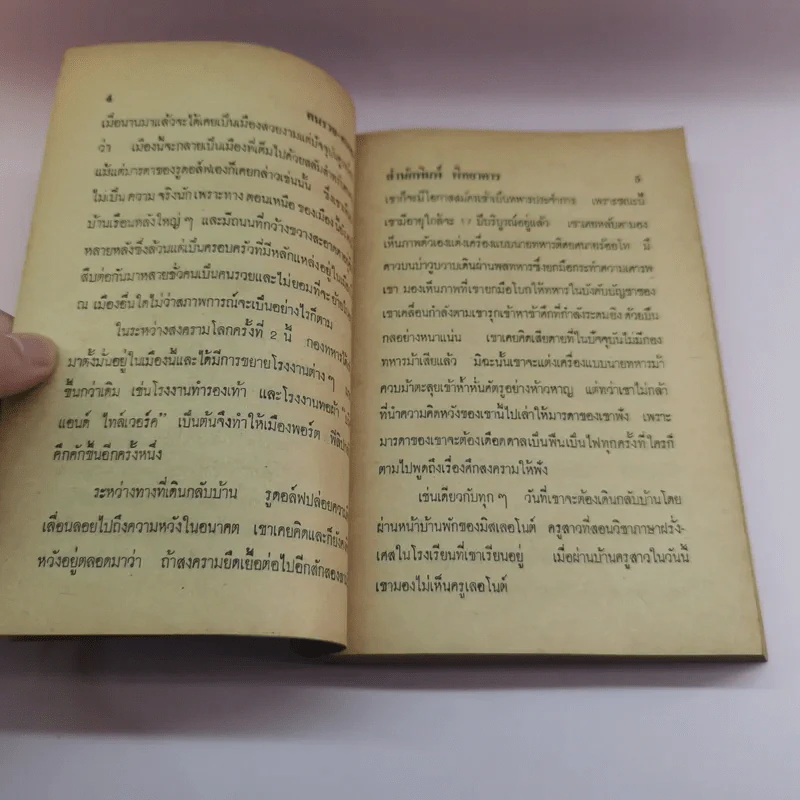 4
เมื่อนานมาแล้วจะได้เคยเป็นเมืองสวยงามแต่ปัจจุบัน
ว่า เมืองนี้จะกลายเป็นเมืองที่เต็มไปด้วยสลัม
แม้แต่มารดาของรูดอล์ฟเองก็เคยกล่าวเช่นนั้น
ไม่เป็น ความ จริงนัก เพราะทาง ตอนเหนือ ของเมือง
บ้านเรือนหลังใหญ่ ๆ และมีถนนที่กว้างขวางสะอาด
หลายหลังซึ่งล้วนแต่เป็นครอบครัวที่มีหลักแหล่งอยู่ใน
สืบต่อกันมาหลายชั่วคนเป็นคนรวยและไม่ยอมที่จะ
ณ เมืองอื่นใดไม่ว่าสภาพการณ์จะเป็นอย่างไรก็ตาม
ในระหว่างสงครามโลกครั้งที่ 2 นี้ กองทหาร
มาตั้งมั่นอยู่ในเมืองนี้และได้มีการขยายโรงงานต่าง ๆ
ขึ้นกว่าเดิม เช่นโรงงานทำรองเท้า และโรงงานทอผ้า
แอนด์ ไทล์เวอร์ค” เป็นต้นจึงทำให้เมืองพอร์ต
คึกคักขึ้นอีกครั้งหนึ่ง
ระหว่างทางที่เดินกลับบ้าน รูดอล์ฟปล่อย
เลื่อนลอยไปถึงความหวังในอนาคต เขาเคยคิดและก็ยัง
หวังอยู่ตลอดมาว่า ถ้าสงครามยืดเยื้อต่อไปอีกสัก
สำนักพิมพ์ พิทยาคาร 5
เขาก็จะมีโอกาสสมัครเข้าเป็นทหารประจำการ เพราะขณะนี้
เขามีอายุใกล้จะ 17 ปีบริบูรณ์อยู่แล้ว เขาเคยหลับตามอง
เห็นภาพตัวเองแต่งเครื่องแบบนายทหารติดยศนายร้อยโท มี
ดาวบนบ่าวูบวาบเดินผ่านพลทหารซึ่งยกมือกระทำความเคารพ
เขา มองเห็นภาพที่เขายกมือโบกให้ทหารในบังคับบัญชาของ
เขาเคลื่อนกำลังตามเขารุกเข้าหาข้าศึกที่กำลังระดมยิง ด้วยปืน
กลอย่างหนาแน่น เขาเคยคิดเสียดายที่ในปัจจุบันไม่มีกอง
ทหารม้าเสียแล้ว มิฉะนั้นเขาจะแต่งเครื่องแบบนายทหารม้า
ควบม้าตะลุยเข้าห้ำหั่นศัตรูอย่างห้าวหาญ แต่ทว่าเขาไม่กล้า
ที่นำความคิดหวังของเขานี้ไปเล่าให้มารดาของเขาฟัง เพราะ
มารดาของเขาจะต้องเดือดดาลเป็นฟืนเป็นไฟทุกครั้งที่ใครก็
ตามไปพูดถึงเรื่องศึกสงครามให้ฟัง
เช่นเดียวกับทุก ๆ วันที่เขาจะต้องเดินกลับบ้านโดย
ผ่านหน้าบ้านพักของมิสเลอโนต์ ครูสาวที่สอนวิชาภาษาฝรั่ง-
เศสในโรงเรียนที่เขาเรียนอยู่ เมื่อผ่านบ้านครูสาวในวันนี้
เขามองไม่เห็นครูเลอโนต์